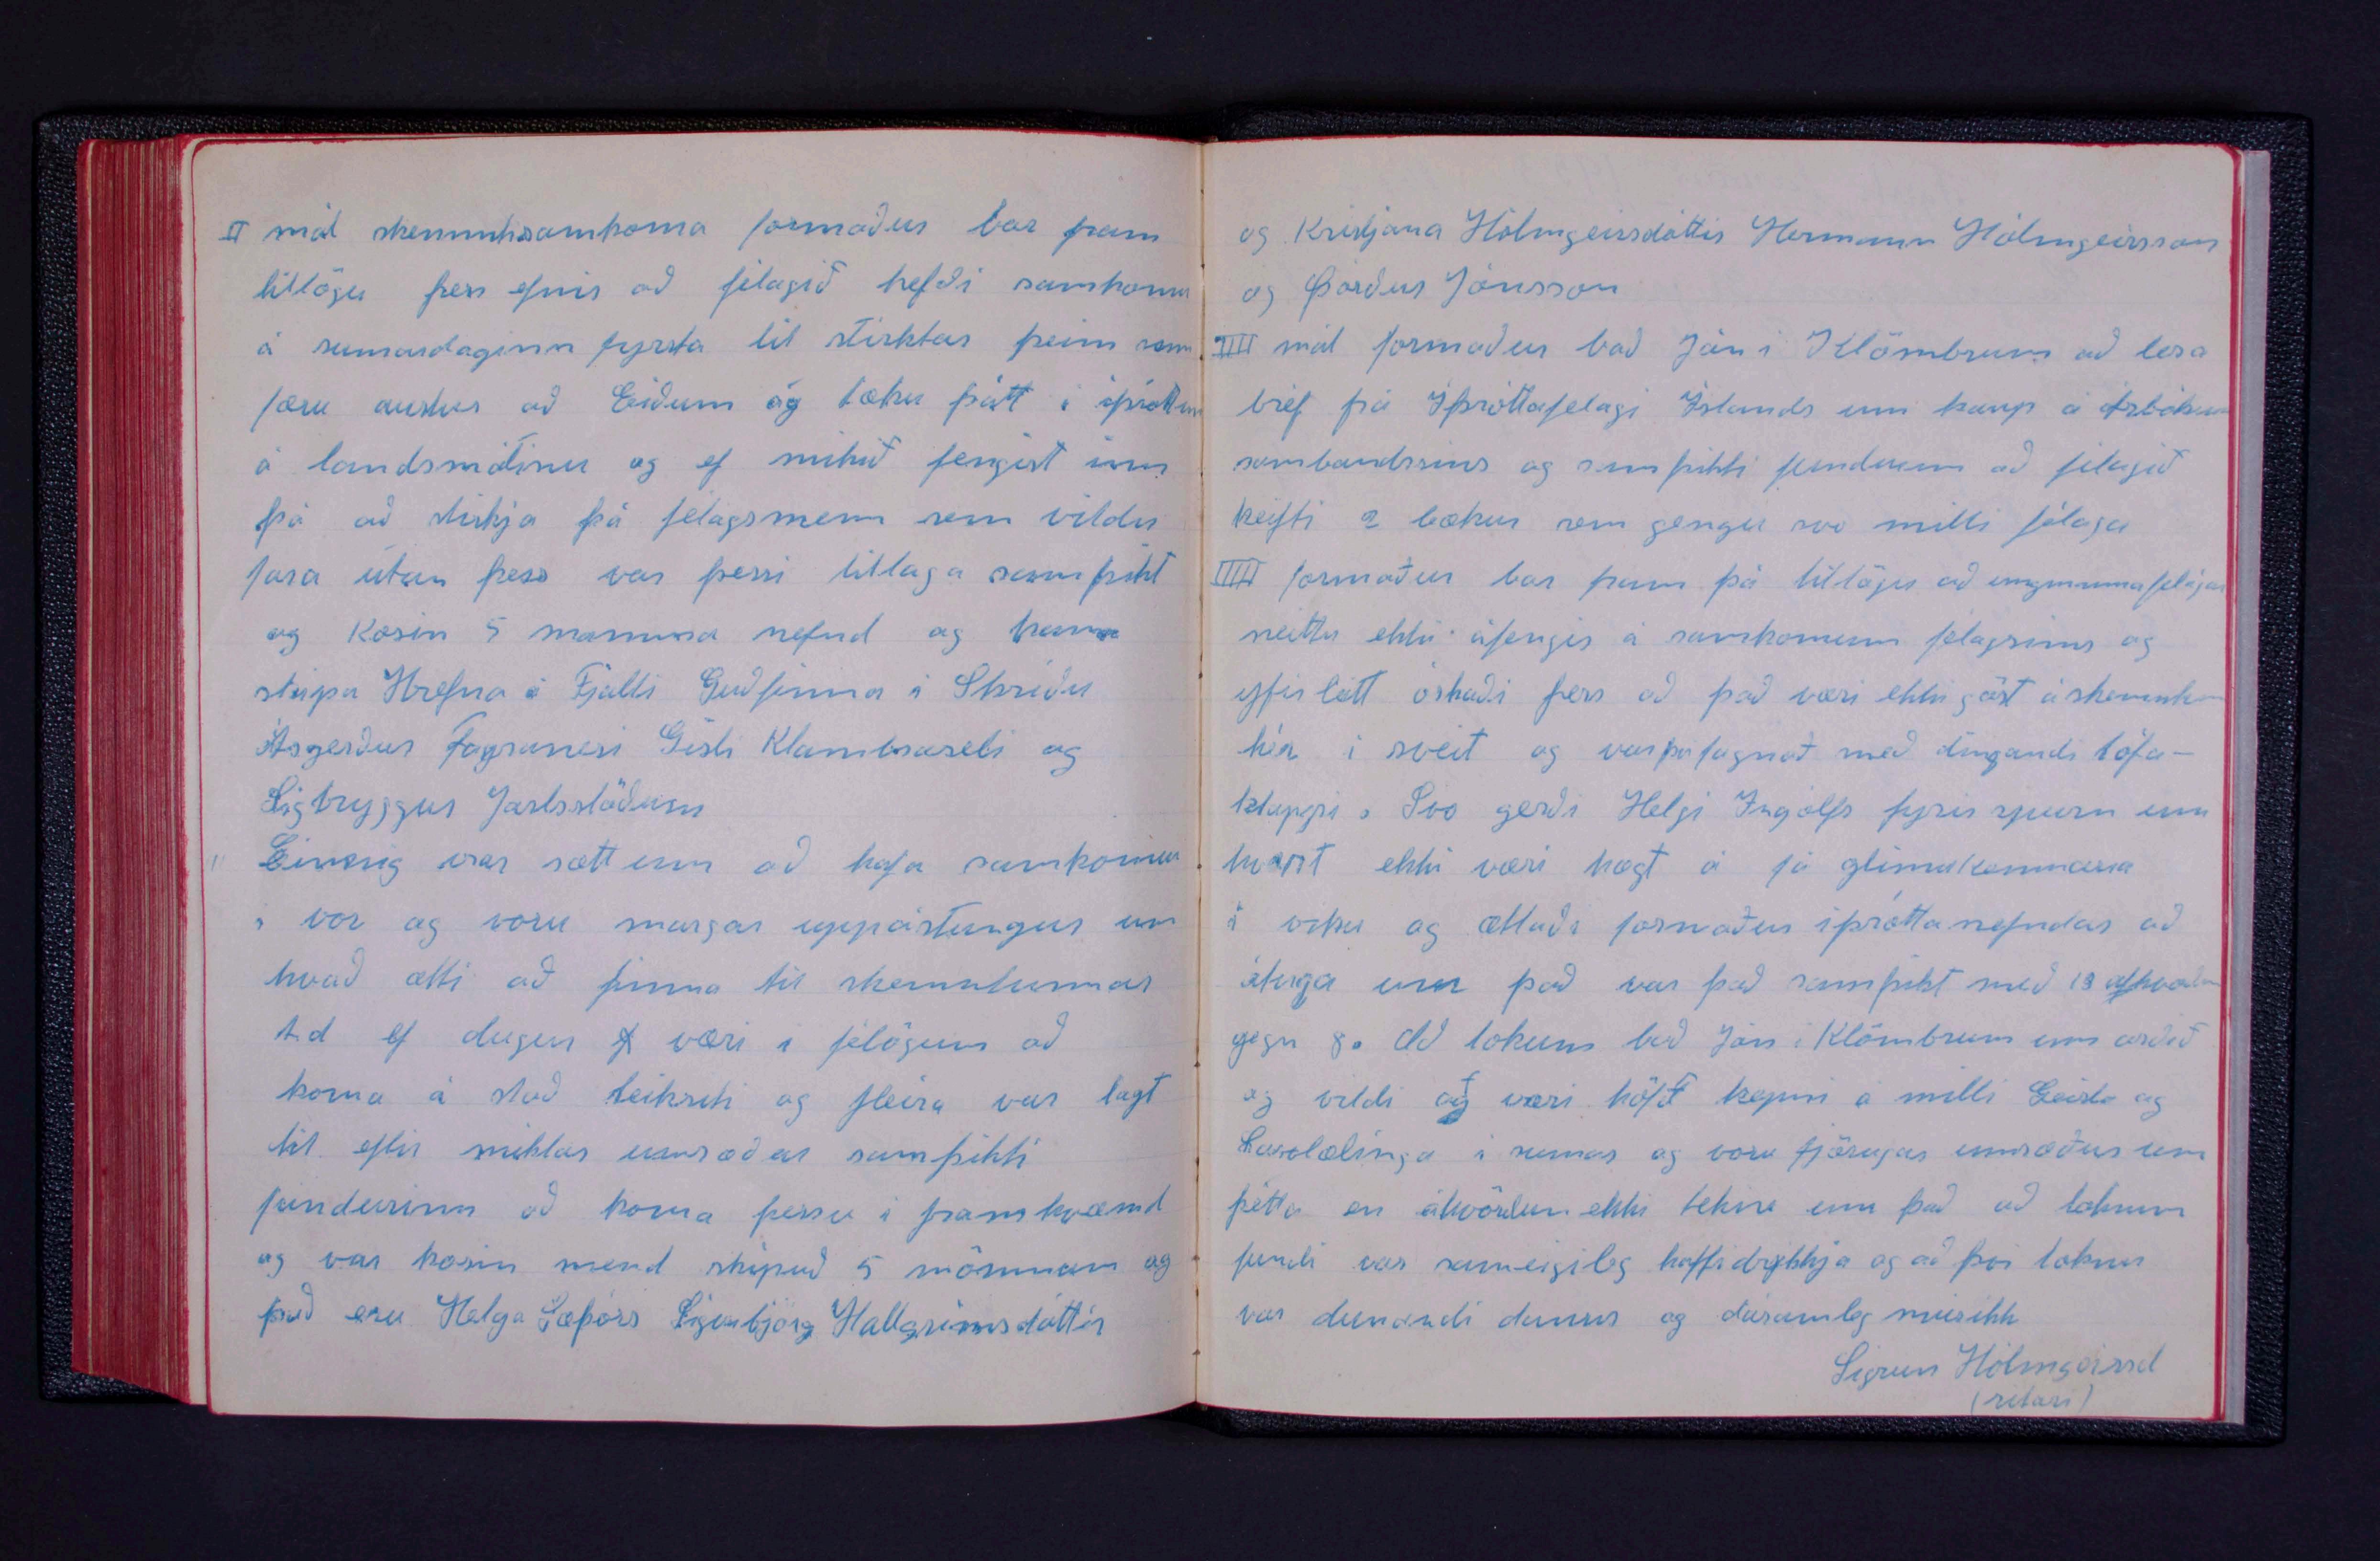 II mál skemmtisamkoma formaður bar fram
tillögu þess efnis að félagið hefði samkomu
á sumardaginn fyrsta til stirktar þeim sem
færu austur að Eiðum og tæku þátt í íþróttum
á landsmótinu og ef mikið fengist inn
þá að stirkja þá félagsmenn sem vildu
fara útan þess var þessi tillaga samþikt
og kosin 5 mamna nefnd og hana
skipa Hrefna á Fjalli Guðfinna í Skriðu
Ásgerður Fagranesi Gísli Klambraseli og
Sigtryggur Jarlsstöðum
" Einnig var rætt um að hafa samkomur
í vor og voru margar uppástungur um
hvað ætti að finna til skemmtunnar
t.d ef dugur væri í félögum að
koma á stað leikriti og fleira var lagt
til eftir miklar umræðar samþikti
fundurinn að koma þessu í framkvæmd
og var kosin nemd skipuð 5 mönnum og
það eru Helga Sæþórs Sigurbjörg Hallgrímsdóttir
og Kristjana Hólmgeirsdóttir Hermann Hólmgeirsson
og Þórður Jónsson
III mál formaður bað Jón í Klömbrum að lesa
bréf frá Íþróttafelagi Íslands um kaup á árbókum
sambandssins og samþikti fundurinn að félagið
keifti 2 bækur sem gengu svo milli félaga
IIII formaður bar fram þá tillögu að ungmennafélagar
neittu ekki áfengis á samkomum félagsins og
yfir lätt óskaði þess að það væri ekki gört á skemmtun
hér í sveit og var því fagnað með dingandi lófa-
klappi. Svo gerði Helgi Ingólfs fyrir spurn um
hvort ekki væri hægt á fá glímukennara
í viku og ætlaði formaður íþróttanefndar að
átuga um það var það samþikt með 13 atkvæðum
gegn 8. Að lokum bað Jón í Klömbrum um orðið
og vildi að væri höfð keppni á milli Geisla og
Laxdælinga í sumar og voru fjörugar umræður um
þetta en ákvörðun ekki tekin um það að loknum
fundi var sameigileg kaffidrykkja og að því loknu
var dunandi dansur og dásamleg músikk
Sigrun Hólmgeirsd
(ritari)